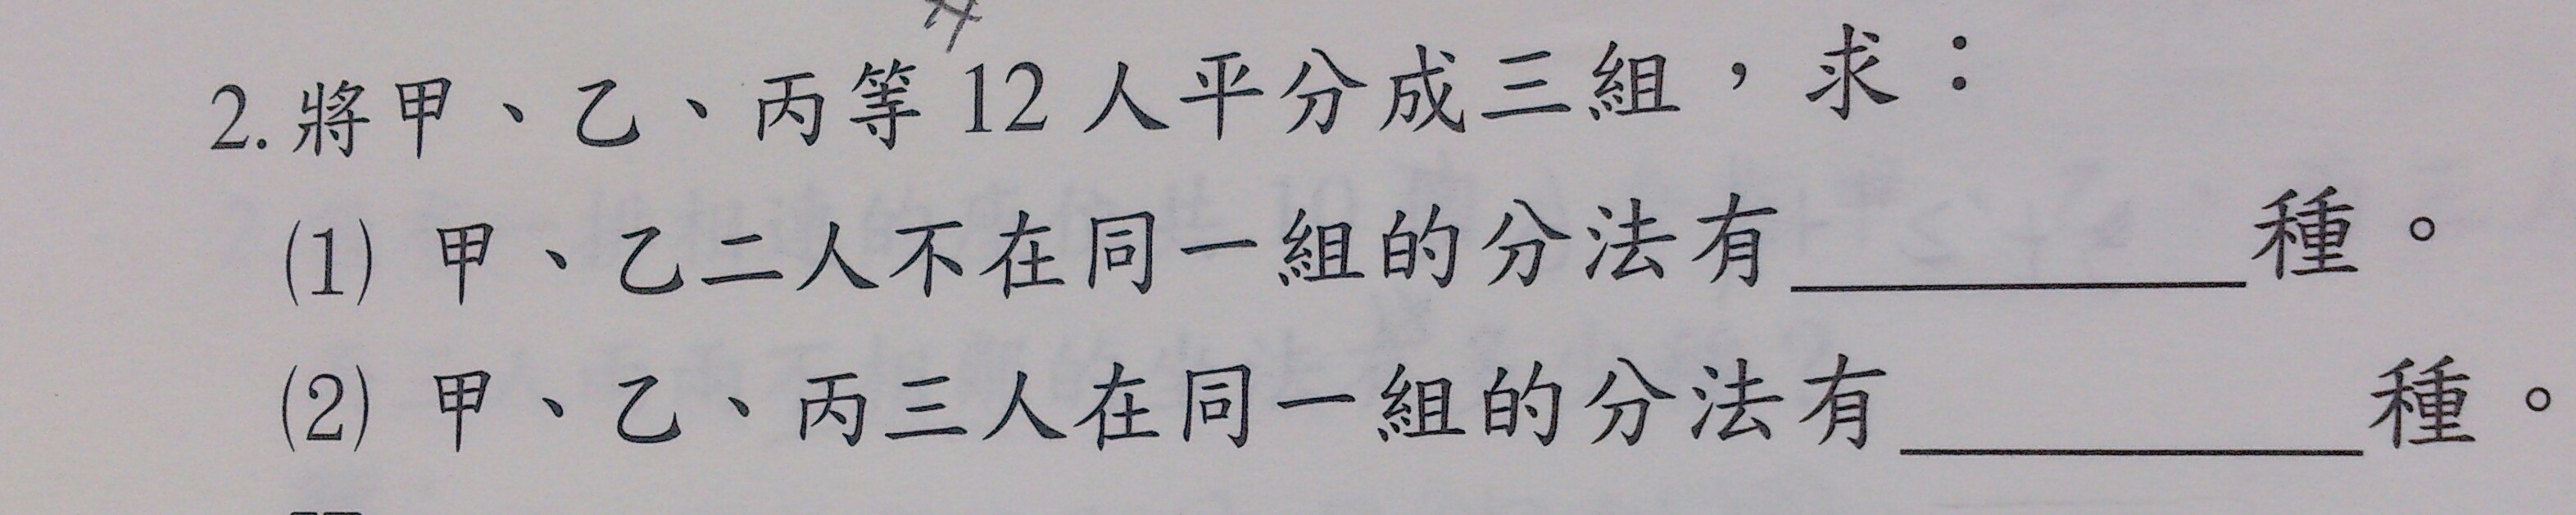 2. 將甲、乙、丙等 12 人平分成三組，求：
(1) 甲、乙二人不在同一組的分法有__________種。
(2) 甲、乙、丙三人在同一組的分法有__________種。